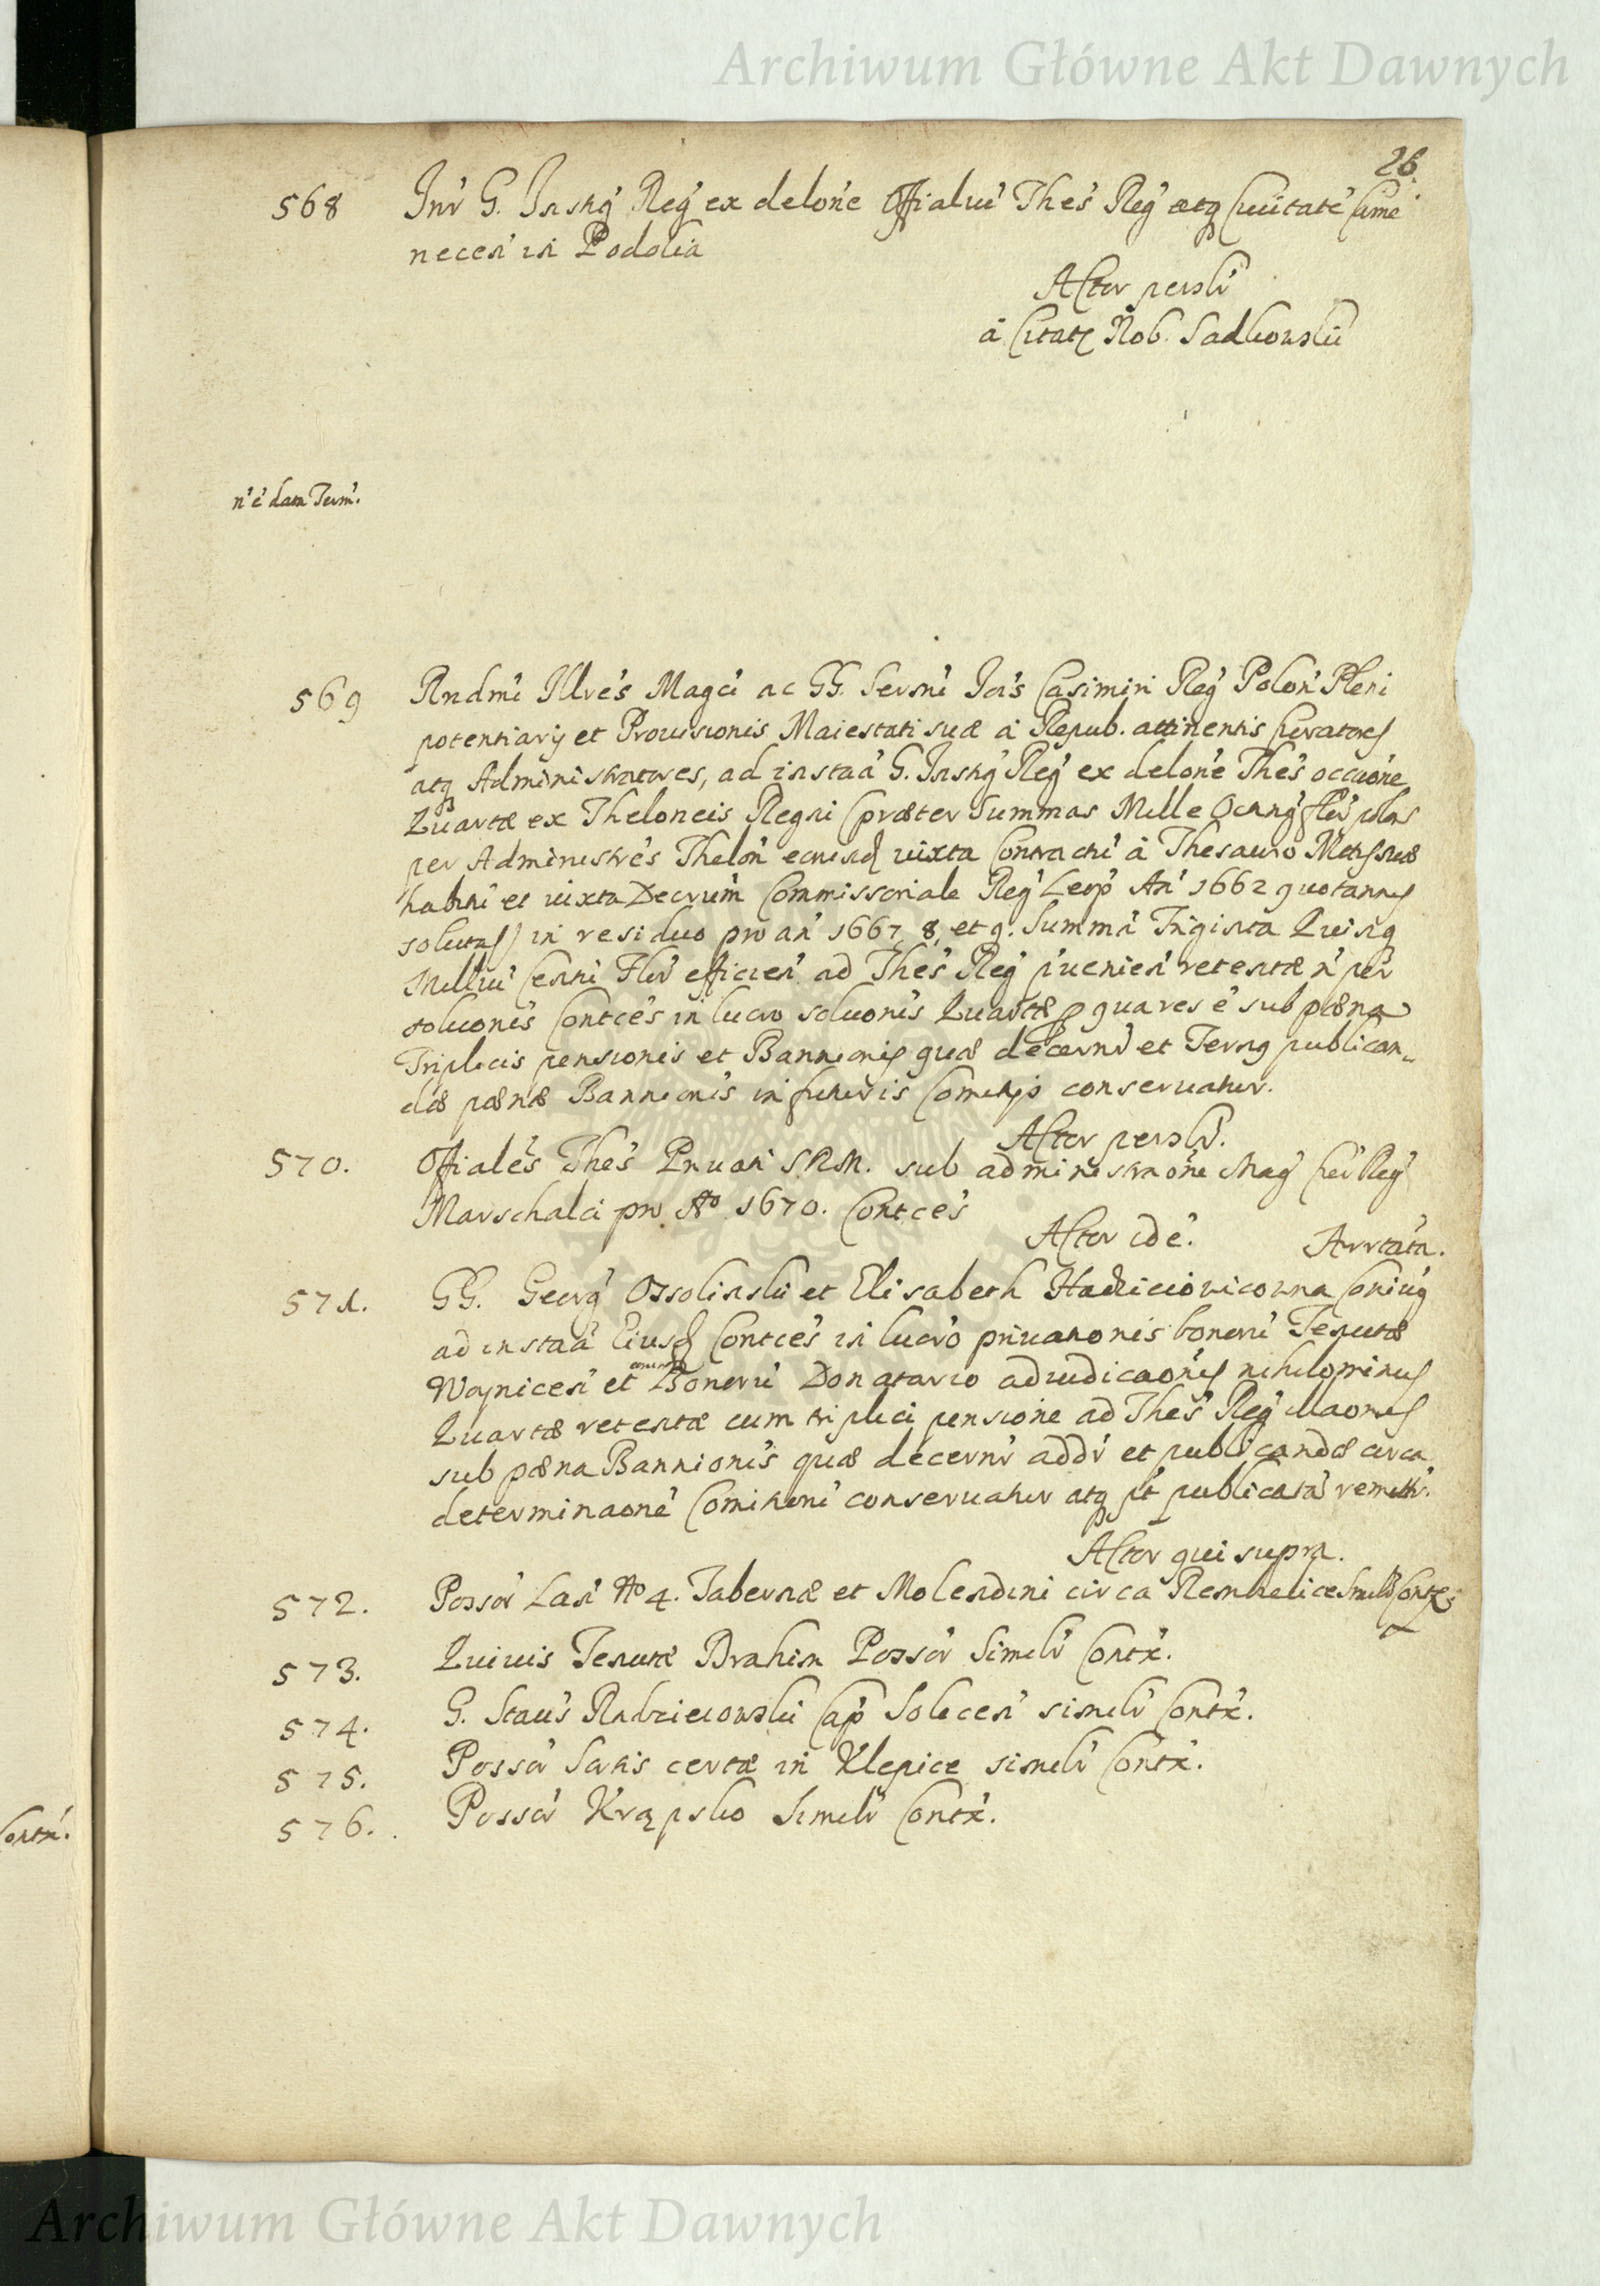 Archiwum Główne Akt Dawnych
26.
568 Int' G. Instig' Reg' ex delone' Offialiu' Thes' Reg' atq Civitate' Came
necen' in Podolia
Actor persli'
à Citatis Nob. Sadkowski
n' e' dum Term'.
569 Rndmi' Illres' Magci' ac GG. Sersmi' Jois' Casimiri Reg' Polon' Pleni
potentiarij et Prouisionis Maiestati suæ à Repub. attinentis Curatores
atq Administratores, ad instaã G. Instig' Reg' ex delone' Thes' occione
Quartæ ex Theloneis Regni (præter Summas Mille flor'
per Administres' Thelon' iuxta Contractu' à Thesauro
habitu' et iuxta Decrum' Commissoriale Reg' Leop' An' 1662 quotannis
solutas) in residuo pro an' 1667, 8, et 9. Summa' Triginta Quinq
Milliu' Centu' Flor' efficien' ad Thes' Reg' p'uenien' retentæ n' per
soluonis Contces' in lucro soluonis Quartæ p qua res e' sub pæna
Triplicis pensionis et Bannionis quæ decernr' et Termq publican„
dæ pænæ Bannionis in futuris Comitijs conseruatur.
Actor persli'.
570. Offiales Thes' Priuati S R M. sub administraone Mag' Cur' Reg'
Marschalci pro Ao 1670. Contces'
Actor ide'. Arrtata.
571. GG. Georg' Ossolinski et Elisabeth Coniug'
ad instaã Eiusd Contces' in lucro priuationis bonoru' Tenutæ
Woynicen' et eorum Bonoru' Donatario adiudicaonis nihilominus
Quartæ retentæ cum triplici pensione ad Thes' Reg' illaonis
sub pæna Bannionis quæ decerni' addi' et publicandæ circa
determinaone' Comitioru' conseruatur atq ut publicata remitt'.
Actor qui supra.
572. Possor Lan' No 4. Tabernæ et Molendini circa Rembelice simili' Contx.
573. Quiuis Tenutæ Brahim Possor Simili' Contx'.
574. G. Staus' Radzieiowski Cap' Solecen' simili' Contx'.
575. Possor Sortis certæ in Klepice simili' Contx'.
576. Possor Krąpsko Simili' Contx'.
Contx'.
Archiwum Główne Akt Dawnych